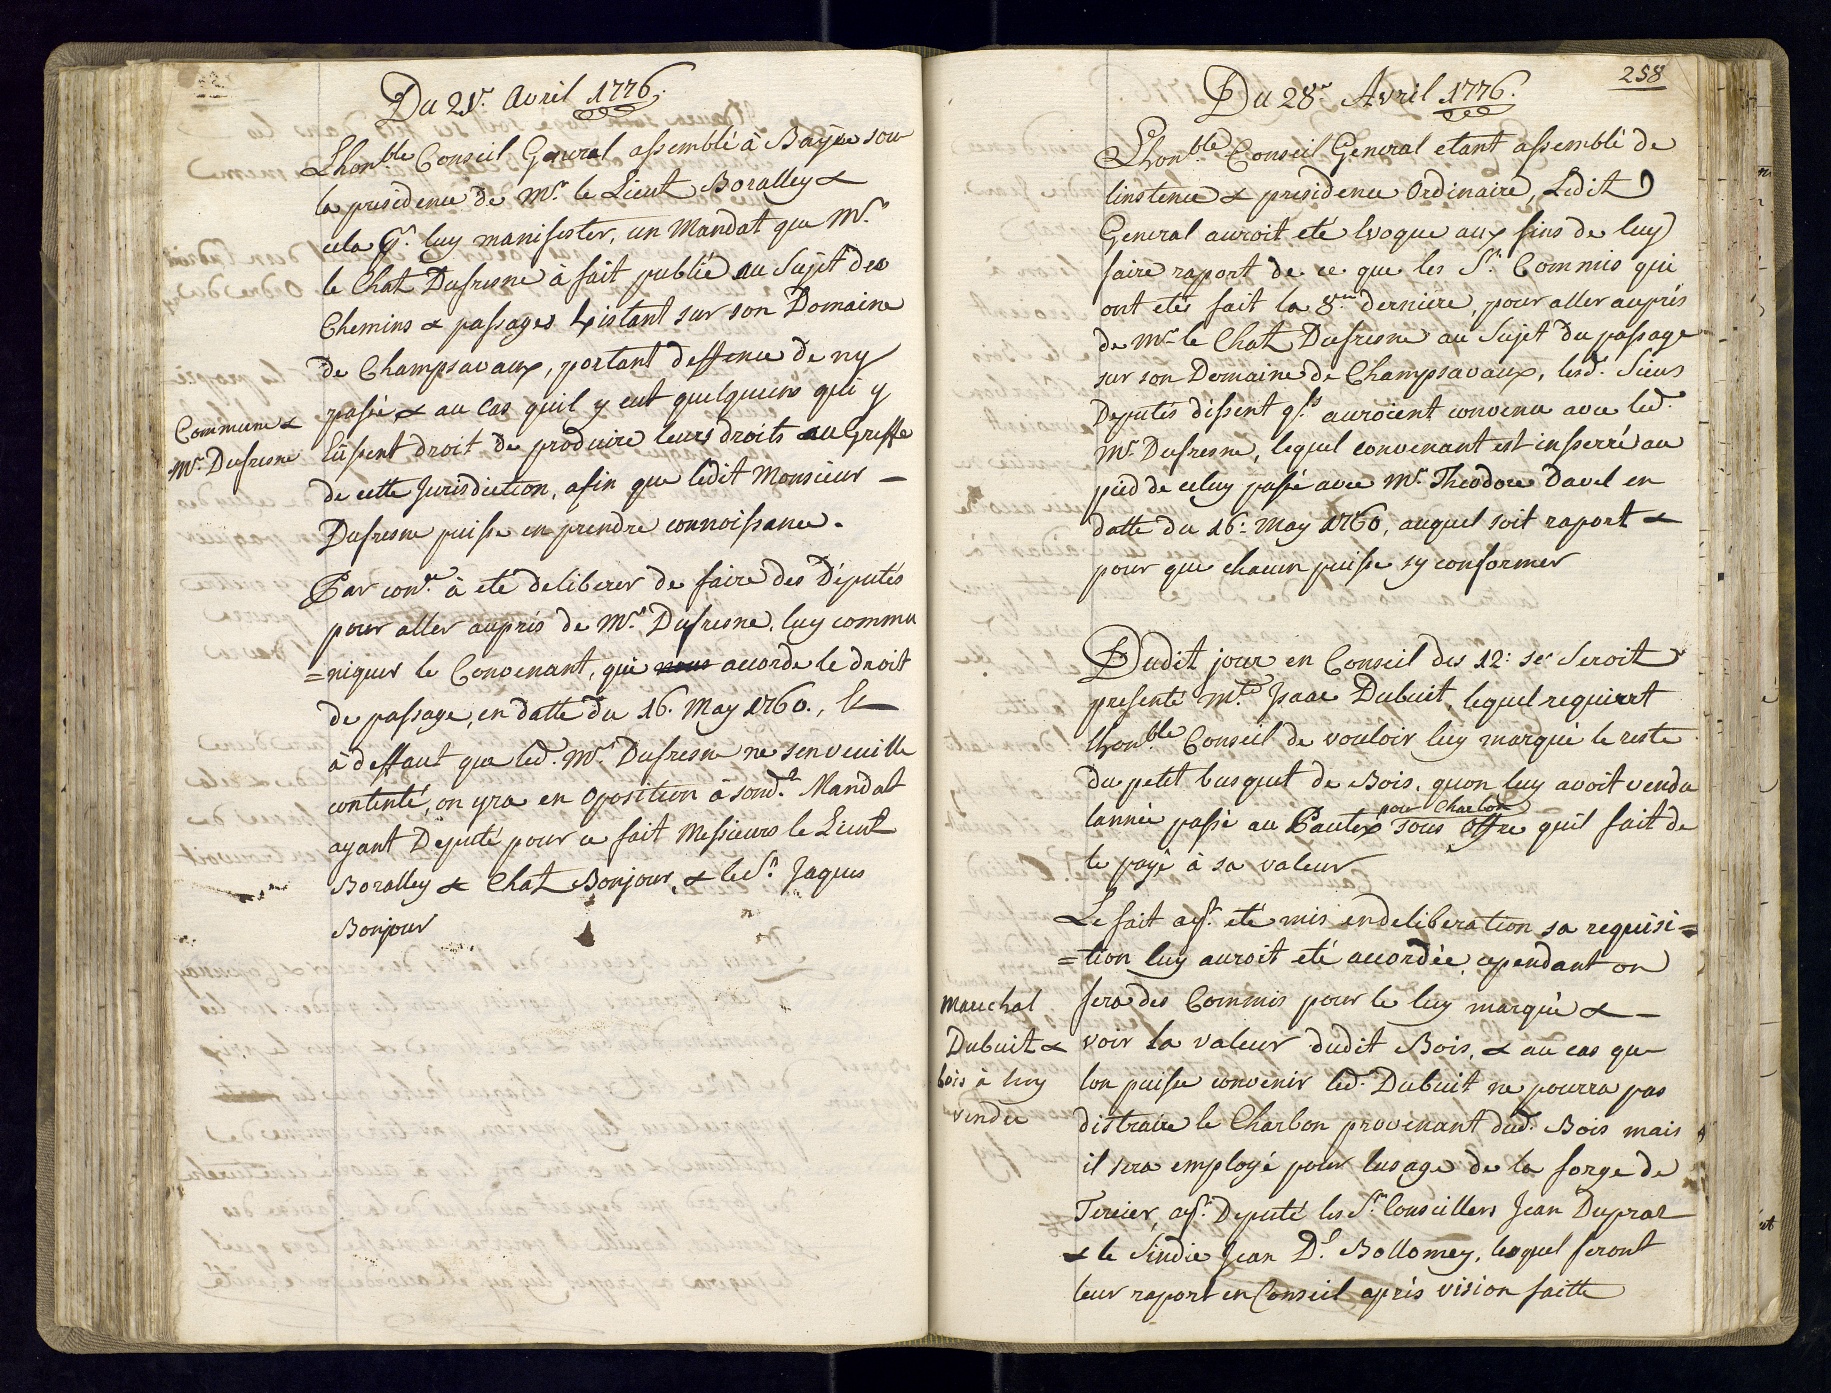 Du 21r. Avril 1776.
Lhonble Conseil General assemblé à Bayse sou
la presidence de Mr. le Lieut Boralley &
cela pr. luy manifester, un Mandat que Mr.
le Chat Dufresne à fait publié au Sujet des
Chemins & passages Existant sur son Domaine
de Champsavaux, portant deffence de ny
passé & au Cas quil y eut quelquuns qui y
Eûssent droit de produire leurs droits au Greffe
de cette Jurisdiction, afin que ledit Monsieur
Dufresne puisse en prendre connoissance.
Commune &
Mr. Dufresne
Par conr. à eté deliberer de faire des Députés
pour aller auprés de Mr. Dufresne, luy commu
=niquer le Convenant, qui nous accorde le droit
de passage, en datte du 16. May 1760., &
à deffaut que led. Mr. Dufresne ne sen veuille
contenté, on yra en Oposition à sond. Mandat
ayant Deputé pour ce fait Messieurs le Lieut
Boralley & Chat Bonjour, & le Sr. Jaques
Bonjour
258
Du 28e. Avril 1776.
Lhonble Conseil General etant assemblé de
linstence & presidence Ordinaire, Ledit
General auroit eté Evoque aux fins de luy
faire raport de ce que les Srs. Commis qui
ont etés fait la 8ne derniere, pour aller auprés
de Mr. le Chat Dufresne au Sujet du passage
sur son Domaine de Champsavaux, lesd. Sieurs
Deputés dissent qls auroient convenu avec led.
Mr. Dufresne, lequel convenant est insserré au
pied de celuy passé avec Mr. Theodore Davel en
datte du 16e. May 1760, auquel soit raport &
pour que chacun puisse sy conformer
Dudit jour en Conseil des 12: se Seroit
presenté Mtre. Isaac Dubuit, lequel requiert
lhonble Conseil de vouloir luy marqué le reste
du petit busquet de Bois, quon luy avoit vendu
lannée passé au Pautex pour Charbon sous Offre quil fait de
le payé à sa valeur
Le fait ayt. eté mis en deliberation sa requisi=
=tion luy auroit eté accordée, cependant on
fera des Commis pour le luy marqué &
voir la valeur dudit Bois, & au cas que
lon puisse convenir led. Dubuit ne pourra pas
distraire le Charbon provenant dud. Bois mais
il sera employé pour lusage de la forge de
Tercier, ayt. Deputé les Srs. Conseillers Jean Dupraz
& le Sindic Jean Dl. Bollomey, lesquel feront
leur raport en Conseil aprés vision faitte
Marechal
Dubuit &
bois à luy
vendu